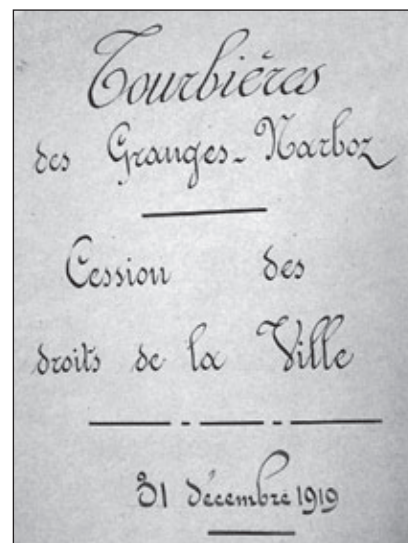 Tourbières
des Granges-Narboz
Cession des
droits de la Ville
31 décembre 1919